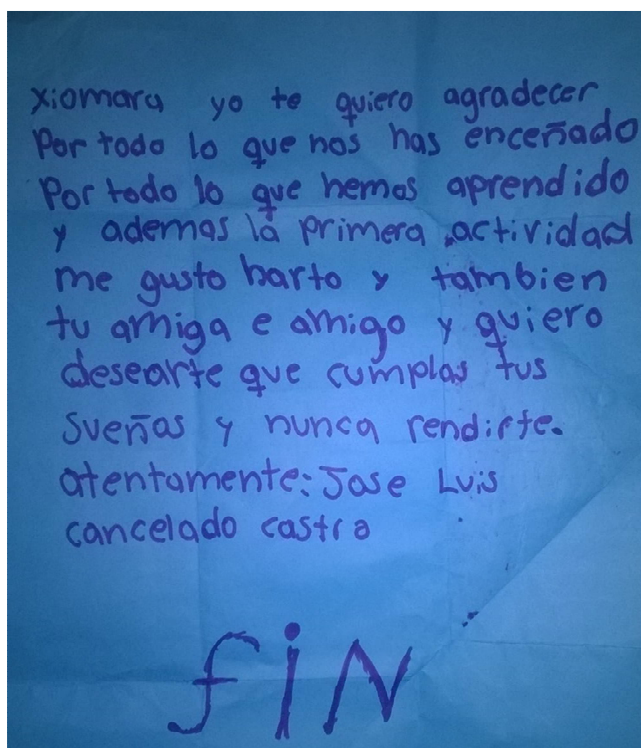 xiomara yo te quiero agradecer
Por todo lo que nos has enceñado
Por todo lo que hemos aprendido
y ademas la primera actividad
me gusto harto y tambien
tu amiga e amigo y quiero
desearte que cumplas tus
sueños y nunca rendirte.
atentamente: Jose Luis
cancelado castro
fiN